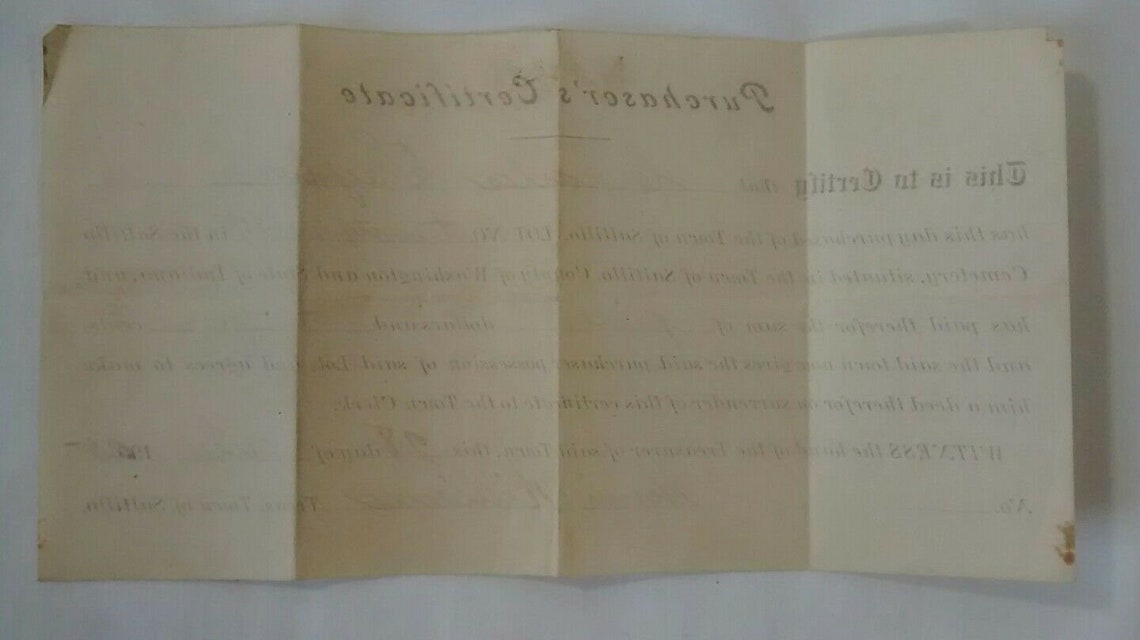 Purchaser's Certificate
This is to Certify that
has this day purchased of the Town of Saltillo, Lot No. in the Saltillo
Cemetery, situated in the Town of Saltillo, County of Washington and State of Indiana, and
has paid therefor the sum of dollars and cents
and the said town now gives the said purchaser possession of said Lot, and agrees to make
him a deed therefor on surrender of this certificate to the Town Clerk.
WITNESS the hand of the Treasurer of said Town, this 28 day of
No. Treas. Town of Saltillo.